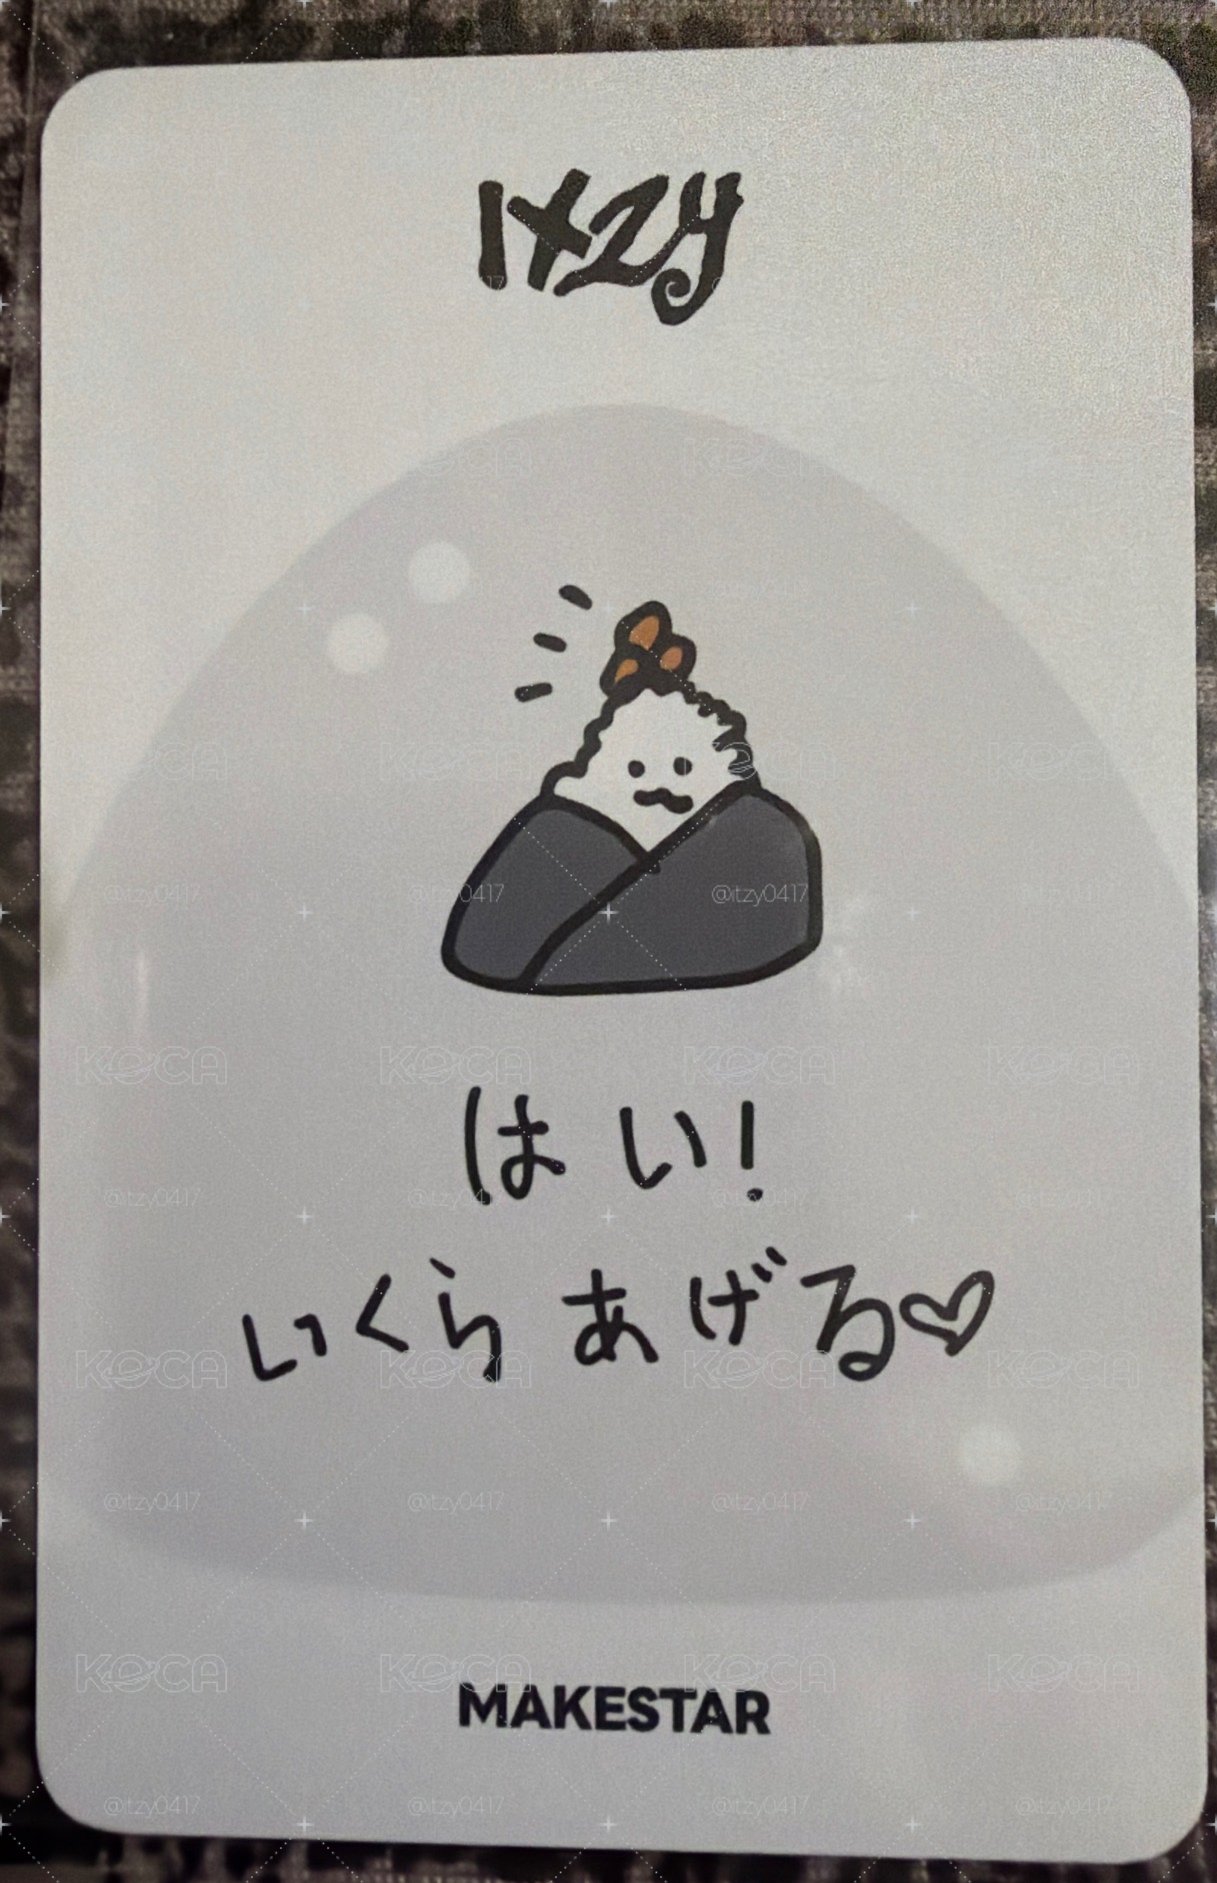 ITZY
はい!
いくらあげる♡
MAKESTAR
KOCA
@itzy0417